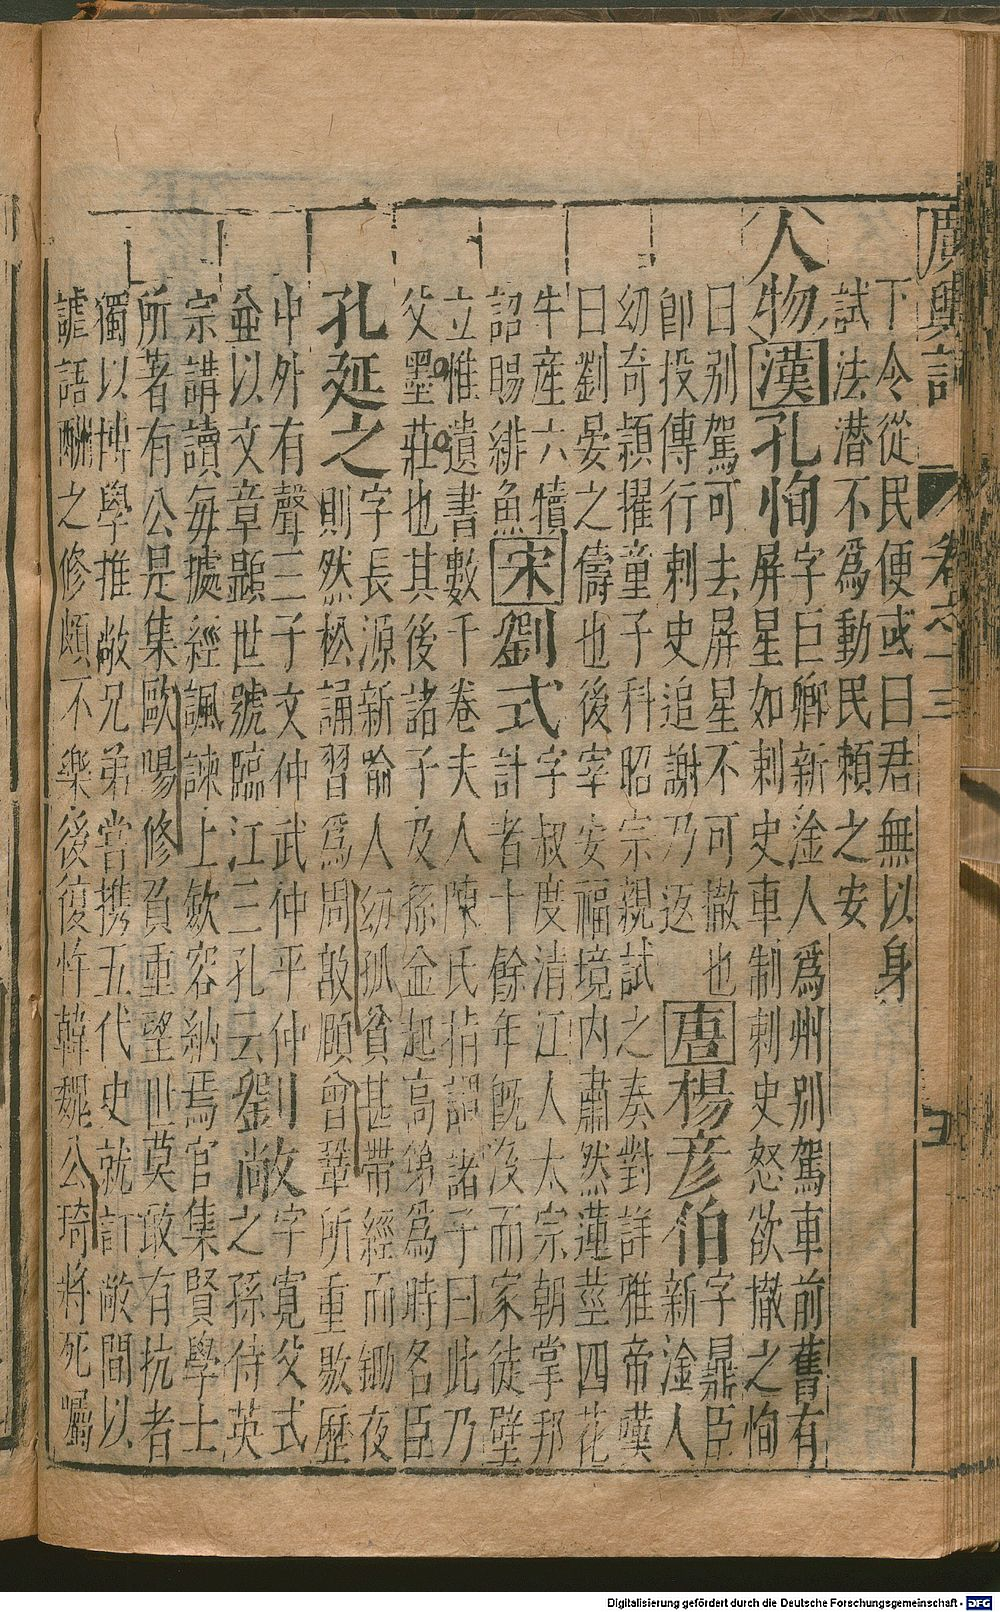 廣輿記 卷之十三
下令從民便或曰君無以身
試法潜不爲動民頼之安
人物 漢 孔恂 字巨卿新淦人爲州别駕車前舊有
屏星如刺史車制刺史怒欲撤之恂
曰别駕可去屏星不可撤也
即投傳行刺史追謝乃返 唐 楊彦伯 字鼎臣
新淦人
幼奇頴擢童子科昭宗親試之奏對詳雅帝嘆
曰劉晏之儔也後宰安福境内肅然蓮莖四花
牛産六犢
詔賜緋魚 宋 劉式 字叔度清江人太宗朝掌邦
計者十餘年既没而家徒壁
立惟遺書數千卷夫人陳氏指謂諸子曰此乃
父墨莊也其後諸子及孫並起高第爲時名臣
孔延之 字長源新喻人幼孤貧甚帶經而鋤夜
則然松誦習爲周敦頤曾鞏所重敭歷
中外有聲三子文仲武仲平仲
並以文章顯世號臨江三孔云 劉敞 字寛父式
之孫侍英
宗講讀每據經諷諫上歛容納焉官集賢學士
所著有公是集歐陽修負重望世莫敢有抗者
獨以博學推敞兄弟嘗携五代史就訂敞間以
謔語酬之修頗不樂後復忤韓魏公琦將死囑
Digitalisierung gefördert durch die Deutsche Forschungsgemeinschaft - DFG